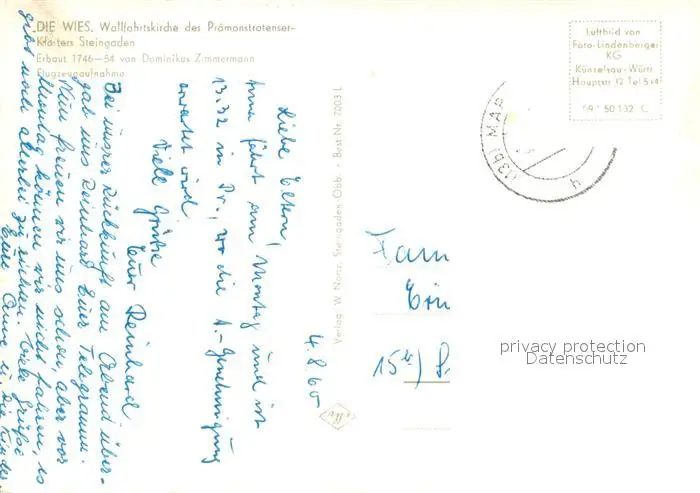 DIE WIES, Wallfahrtskirche des Prämonstratenser-
Klosters Steingaden
Erbaut 1746—54 von Dominikus Zimmermann
Flugzeugaufnahme
Luftbild von
Foto-Lindenberger
KG
Künzelsau-Württ.
Hauptstr. 12 Tel 544
Verlag W. Nonz, Steingaden-Obb. - Best Nr. 7003 1
4.8.60
Liebe Eltern,
Anne fährt am Montag und ist
13.32 in Pr., wo die A.-Genehmigung
erwartet wird
Viele Grüße
Euer Reinhard
Bei unsrer Rückkunft am Abend über-
gab uns Reinhard Euer Telegramm.
Nun freuen wir uns schon, aber vor
Montag können wir nicht fahren, es
gibt noch allerlei zu richten. Viele Grüße
Eure Anne u. die Kinder
Fam
15
privacy protection
Datenschutz